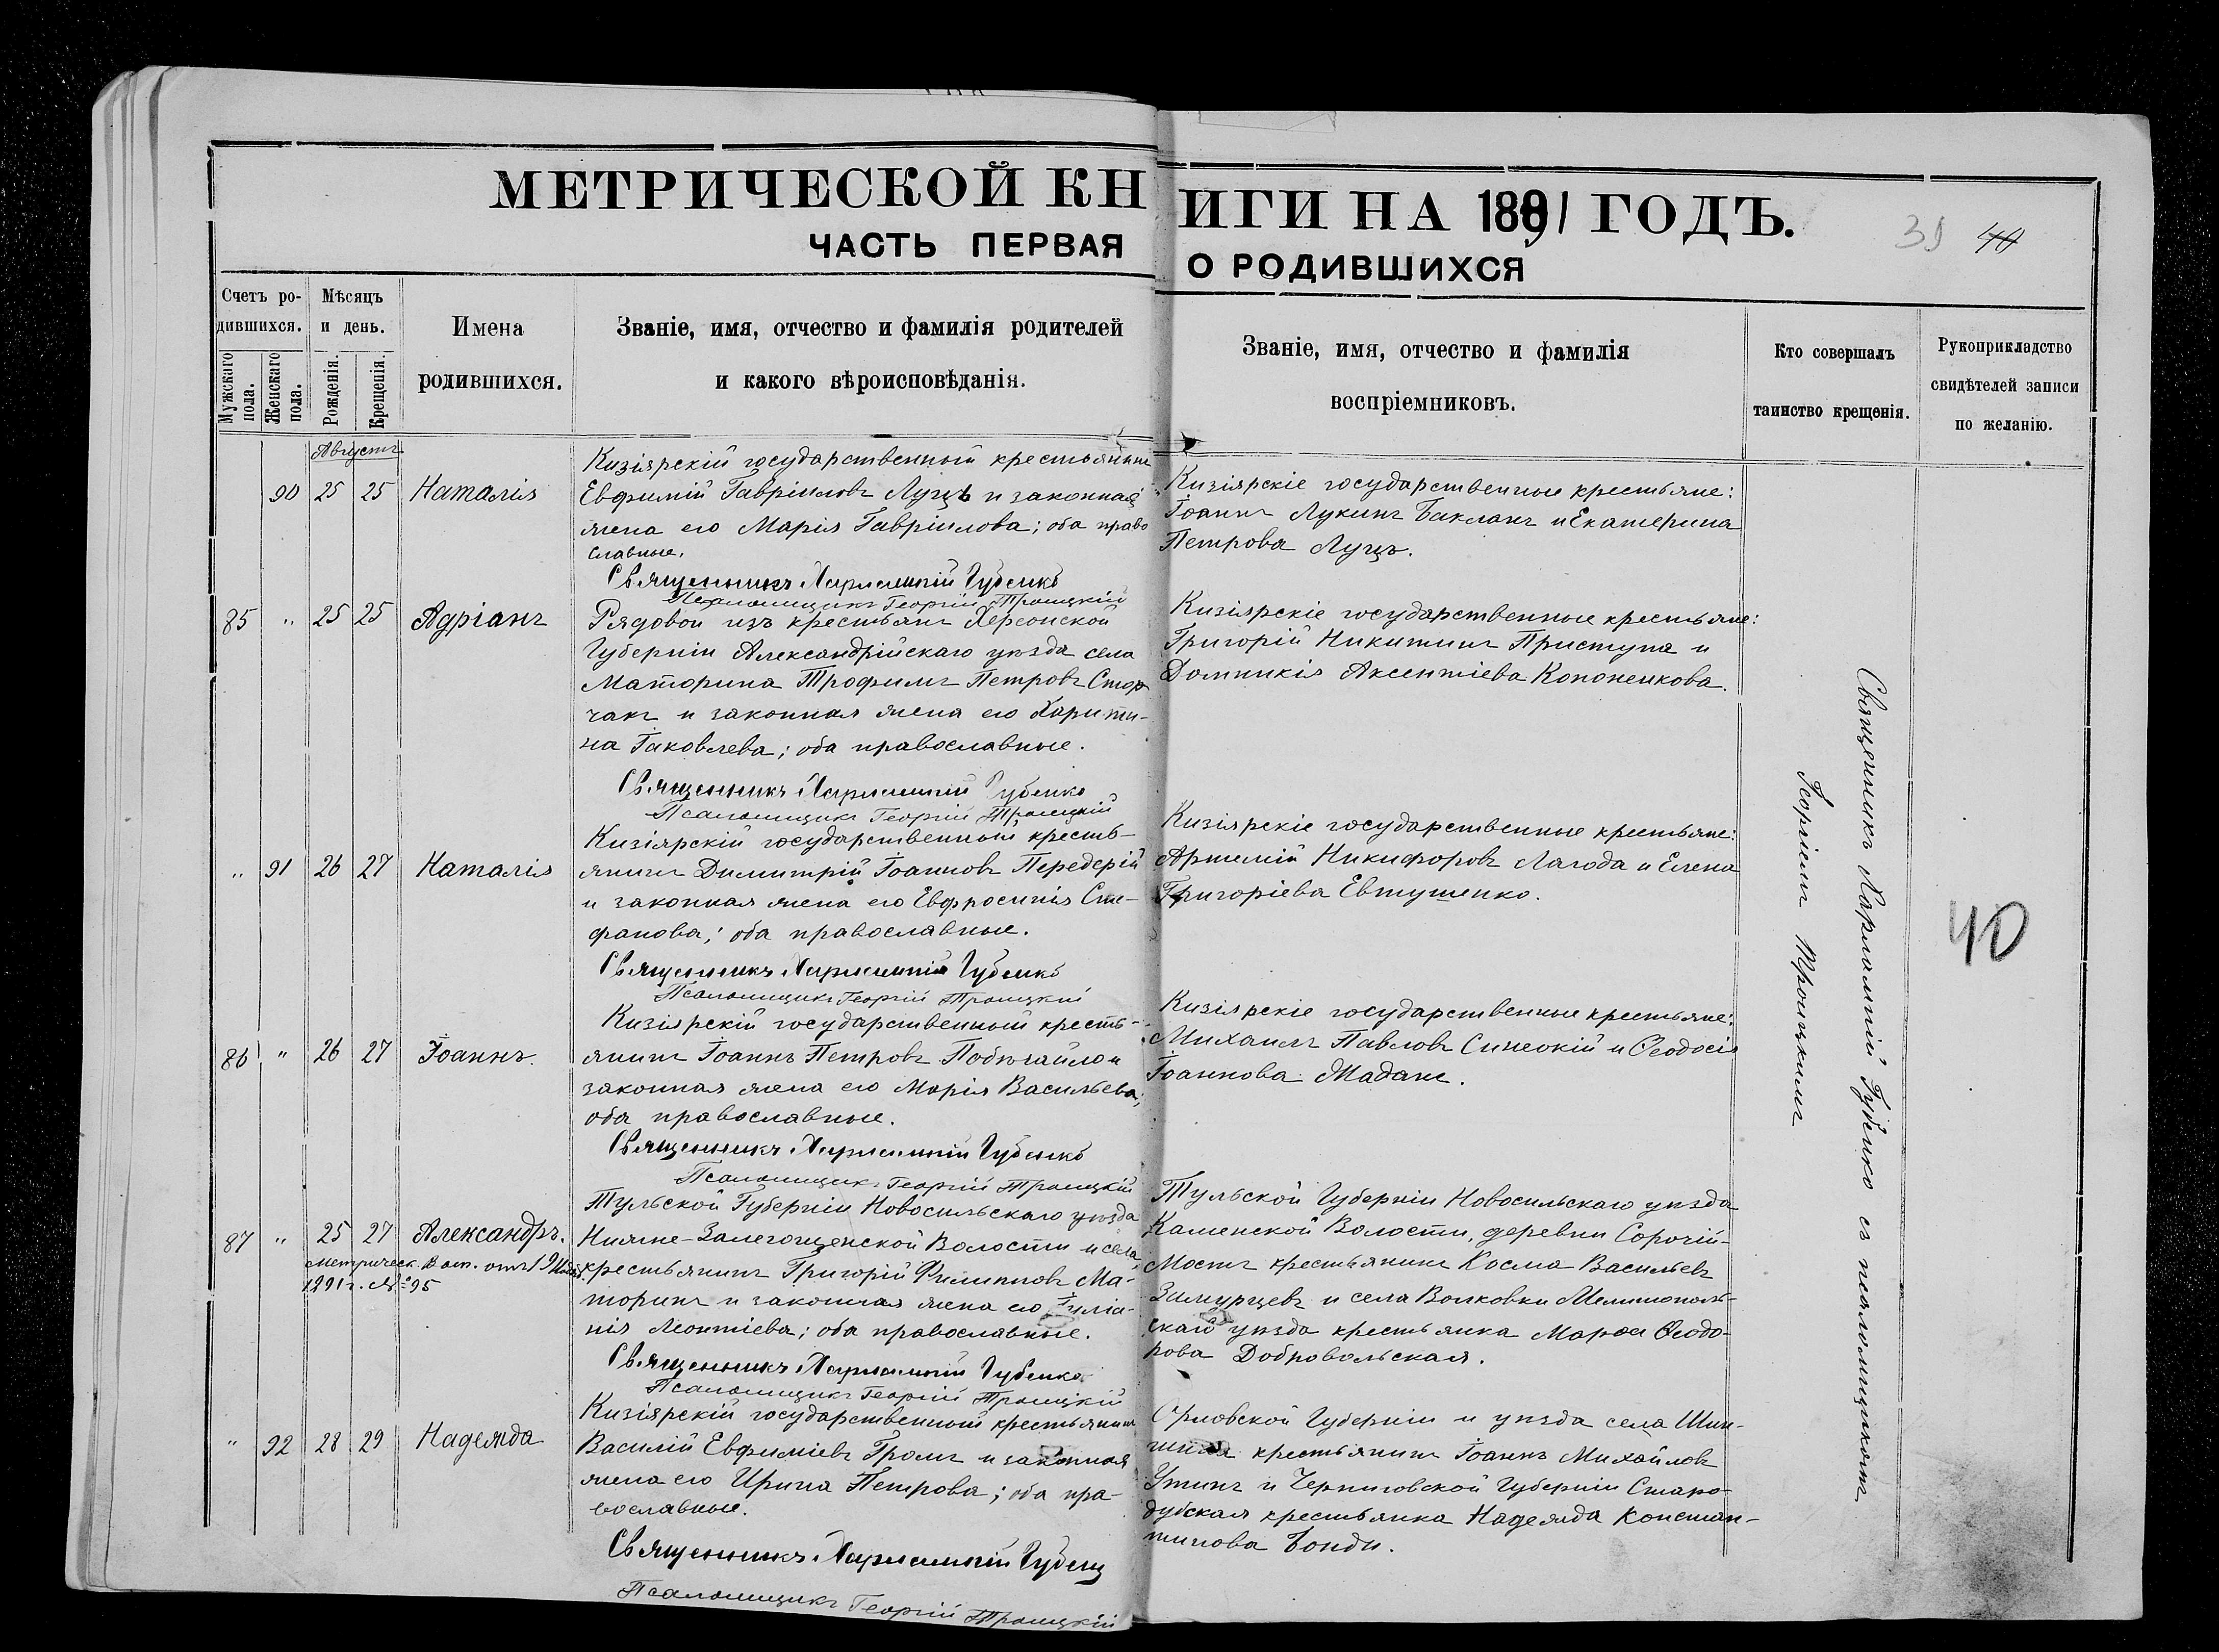 МЕТРИЧЕСКОЙ КНИГИ НА 1891 ГОДЪ.
39 40
ЧАСТЬ ПЕРВАЯ О РОДИВШИХСЯ
Счетъ ро-
дившихся.
Мужскаго пола.
Женскаго пола.
Мѣсяцъ
и день.
Рожденія.
Крещенія.
Имена
родившихся.
Званіе, имя, отчество и фамилія родителей
и какого вѣроисповѣданія.
Званіе, имя, отчество и фамилія
воспріемниковъ.
Кто совершалъ
таинство крещенія.
Рукоприкладство
свидѣтелей записи
по желанію.
Августъ
90 25 25 Наталія
Кизіярскій государственный крестьянинъ
Евфимій Гавріиловъ Луцъ и законная
жена его Марія Гавріилова; оба право
славные.
Священникъ Харлампій Губенко
Псаломщикъ Георгій Троицкій
Кизіярскіе государственные крестьяне:
Іоаннъ Лукинъ Бакланъ и Екатерина
Петрова Луцъ.
85 " 25 25 Адріанъ
Рядовой изъ крестьянъ Херсонской
Губерніи Александрійскаго уѣзда села
Маторина Трофимъ Петровъ Стор
чакъ и законная жена его Харити-
на Іаковлева; оба православные.
Священникъ Харлампій Губенко
Псаломщикъ Георгій Троицкій
Кизіярскіе государственные крестьяне:
Григорій Никитинъ Приступа и
Домникія Аксентіева Кононенкова.
" 91 26 27 Наталія
Кизіярскій государственный кресть-
янинъ Димитрій Іоанновъ Передерій
и законная жена его Евфросинія Сте-
фанова; оба православные.
Священникъ Харлампій Губенко
Псаломщикъ Георгій Троицкій
Кизіярскіе государственные крестьяне:
Артемій Никифоровъ Лагода и Елена
Григоріева Евтушенко.
86 " 26 27 Іоаннъ.
Кизіярскій государственный кресть-
янинъ Іоаннъ Петровъ Побѣгайло и
законная жена его Марія Васильева;
оба православные.
Священникъ Харлампій Губенко
Псаломщикъ Георгій Троицкій
Кизіярскіе государственные крестьяне:
Михаилъ Павловъ Синеокій и Ѳеодосія
Іоаннова Мадане.
87 " 25 27 Александръ.
Метрическ. вып. отъ 19
1891 г. № 95
Тульской Губерніи Новосильскаго уѣзда
Нижне-Залегощенской Волости и села
крестьянинъ Григорій Филипповъ Ма-
торинъ и законная жена его Іуліа-
нія Леонтіева; оба православные.
Священникъ Харлампій Губенко
Псаломщикъ Георгій Троицкій
Тульской Губерніи Новосильскаго уѣзда
Каменской Волости, деревни Сорочій-
Мостъ крестьянинъ Косма Васильевъ
Зимурцевъ и села Волковки Мелитополь-
скаго уѣзда крестьянка Марѳа Ѳеодо-
рова Добровольская.
" 92 28 29 Надежда
Кизіярскій государственный крестьянинъ
Василій Евфиміевъ Громъ и законная
жена его Ирина Петрова; оба пра-
вославные.
Священникъ Харлампій Губенко
Псаломщикъ Георгій Троицкій
Орловской Губерніи и уѣзда села
крестьянинъ Іоаннъ Михайловъ
Утинъ и Черниговской Губерніи Старо-
дубская крестьянка Надежда Констан-
тинова Бонди.
Священникъ Харлампій Губенко съ псаломщикомъ
Георгіемъ Троицкимъ
40